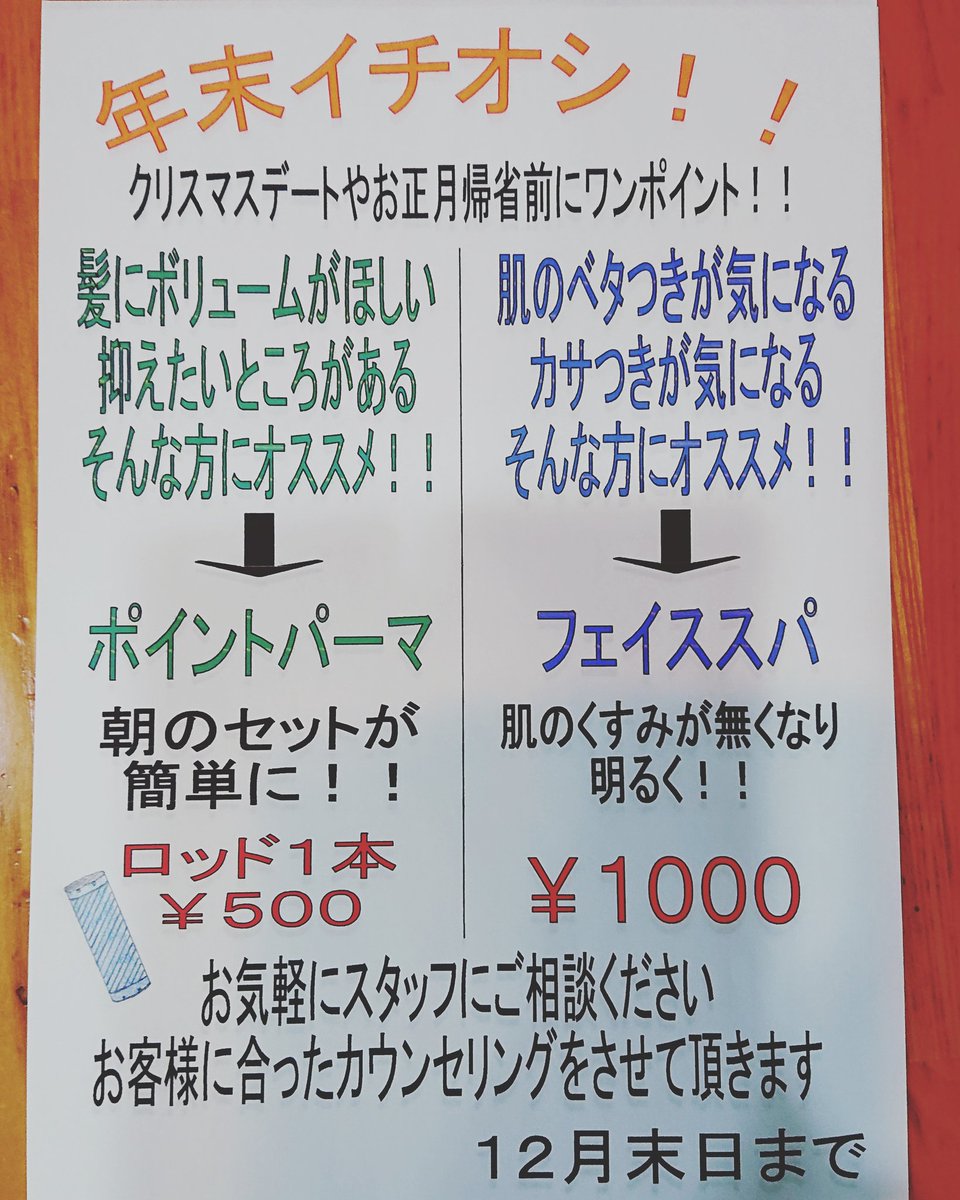 年末イチオシ！！
クリスマスデートやお正月帰省前にワンポイント！！
髪にボリュームがほしい
抑えたいところがある
そんな方にオススメ！！
ポイントパーマ
朝のセットが
簡単に！！
ロッド１本
￥５００
肌のベタつきが気になる
カサつきが気になる
そんな方にオススメ！！
フェイススパ
肌のくすみが無くなり
明るく！！
￥1000
お気軽にスタッフにご相談ください
お客様に合ったカウンセリングをさせて頂きます
１２月末日まで